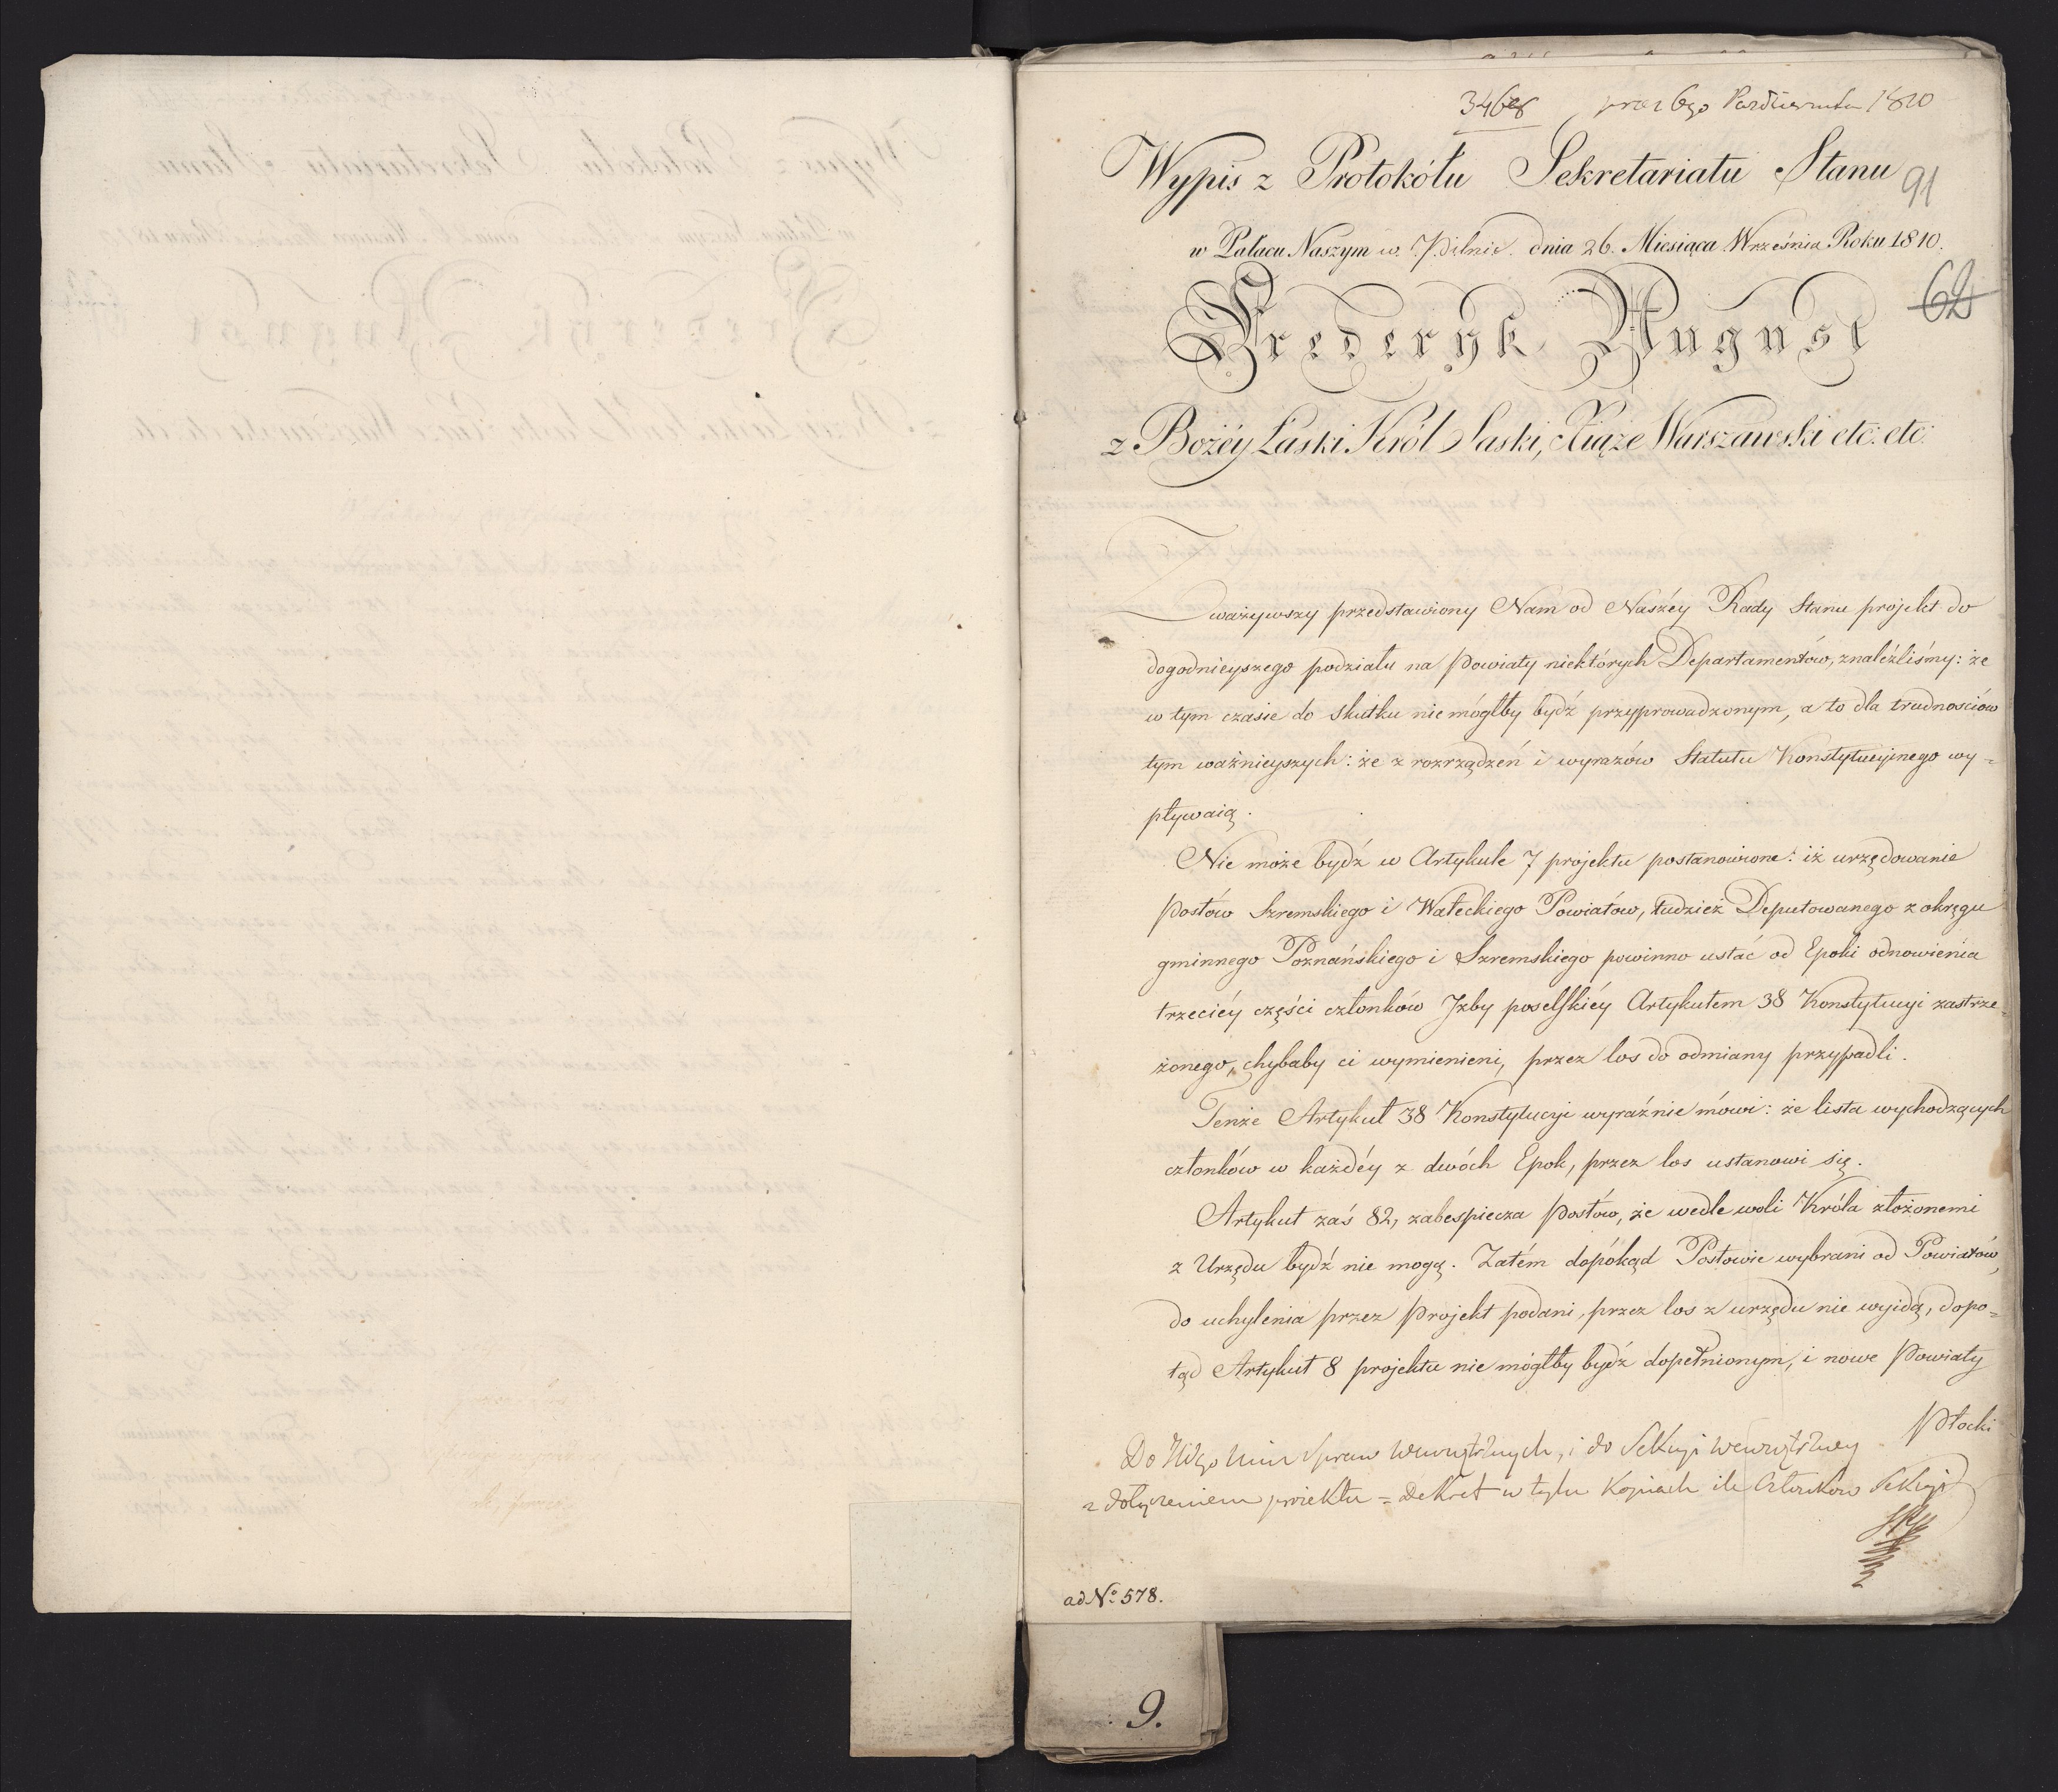 3468 praes 6go Października 1810
Wypis z Protokółu Sekretariatu Stanu
91
w Pałacu Naszym w Pilnic dnia 26. Miesiąca Września Roku 1810.
62
Frederyk August
z Bożéy Łaski Król Saski, Xiąże Warszawski etc: etc:
Zważywszy przedstawiony Nam od Naszéy Rady Stanu projekt do
dogodnieyszego podziału na Powiaty niektórych Departamentów, znaleźliśmy: że
w tym czasie do skutku nie mógłby bydź przyprowadzonym, a to dla trudnościów
tym ważnieyszych: że z rozrządzeń i wyrazów Statutu Konstytucyinego wy=
pływaią.
Nie może bydź w Artykule 7 projektu postanowione: iż urzędowanie
Posłów Szremskiego i Wałeckiego Powiatów, tudzież Deputowanego z okręgu
gminnego Poznańskiego i Szremskiego powinno ustać od Epoki odnowienia
trzeciéy części członków Jzby poselskiéy Artykułem 38 Konstytucyi zastrze=
żonego, chybaby ci wymienieni, przez los do odmiany przypadli.
Tenże Artykuł 38 Konstytucyi wyraźnie mówi: że lista wychodzących
członków w każdéy z dwóch Epok, przez los ustanowi się.
Artykuł zaś 82, zabespiecza Posłów, że wedle woli Króla złożonemi
z Urzędu bydź nie mogą. Zatém dopókąd Posłowie wybrani od Powiatów,
do uchylenia przez Projekt podani, przez los z urzędu nie wyidą, dopo=
tąd Artykuł 8 projektu nie mógłby bydź dopełnionym, i nowe Powiaty
Płocki
Do JWgo Min Spraw Wewnętrznych, i do Sekcyi Wewnętrzney
z dołączeniem proiektu = Dekret w tylu kopiach ile Członków Sekcyi
ad No: 578.
9.